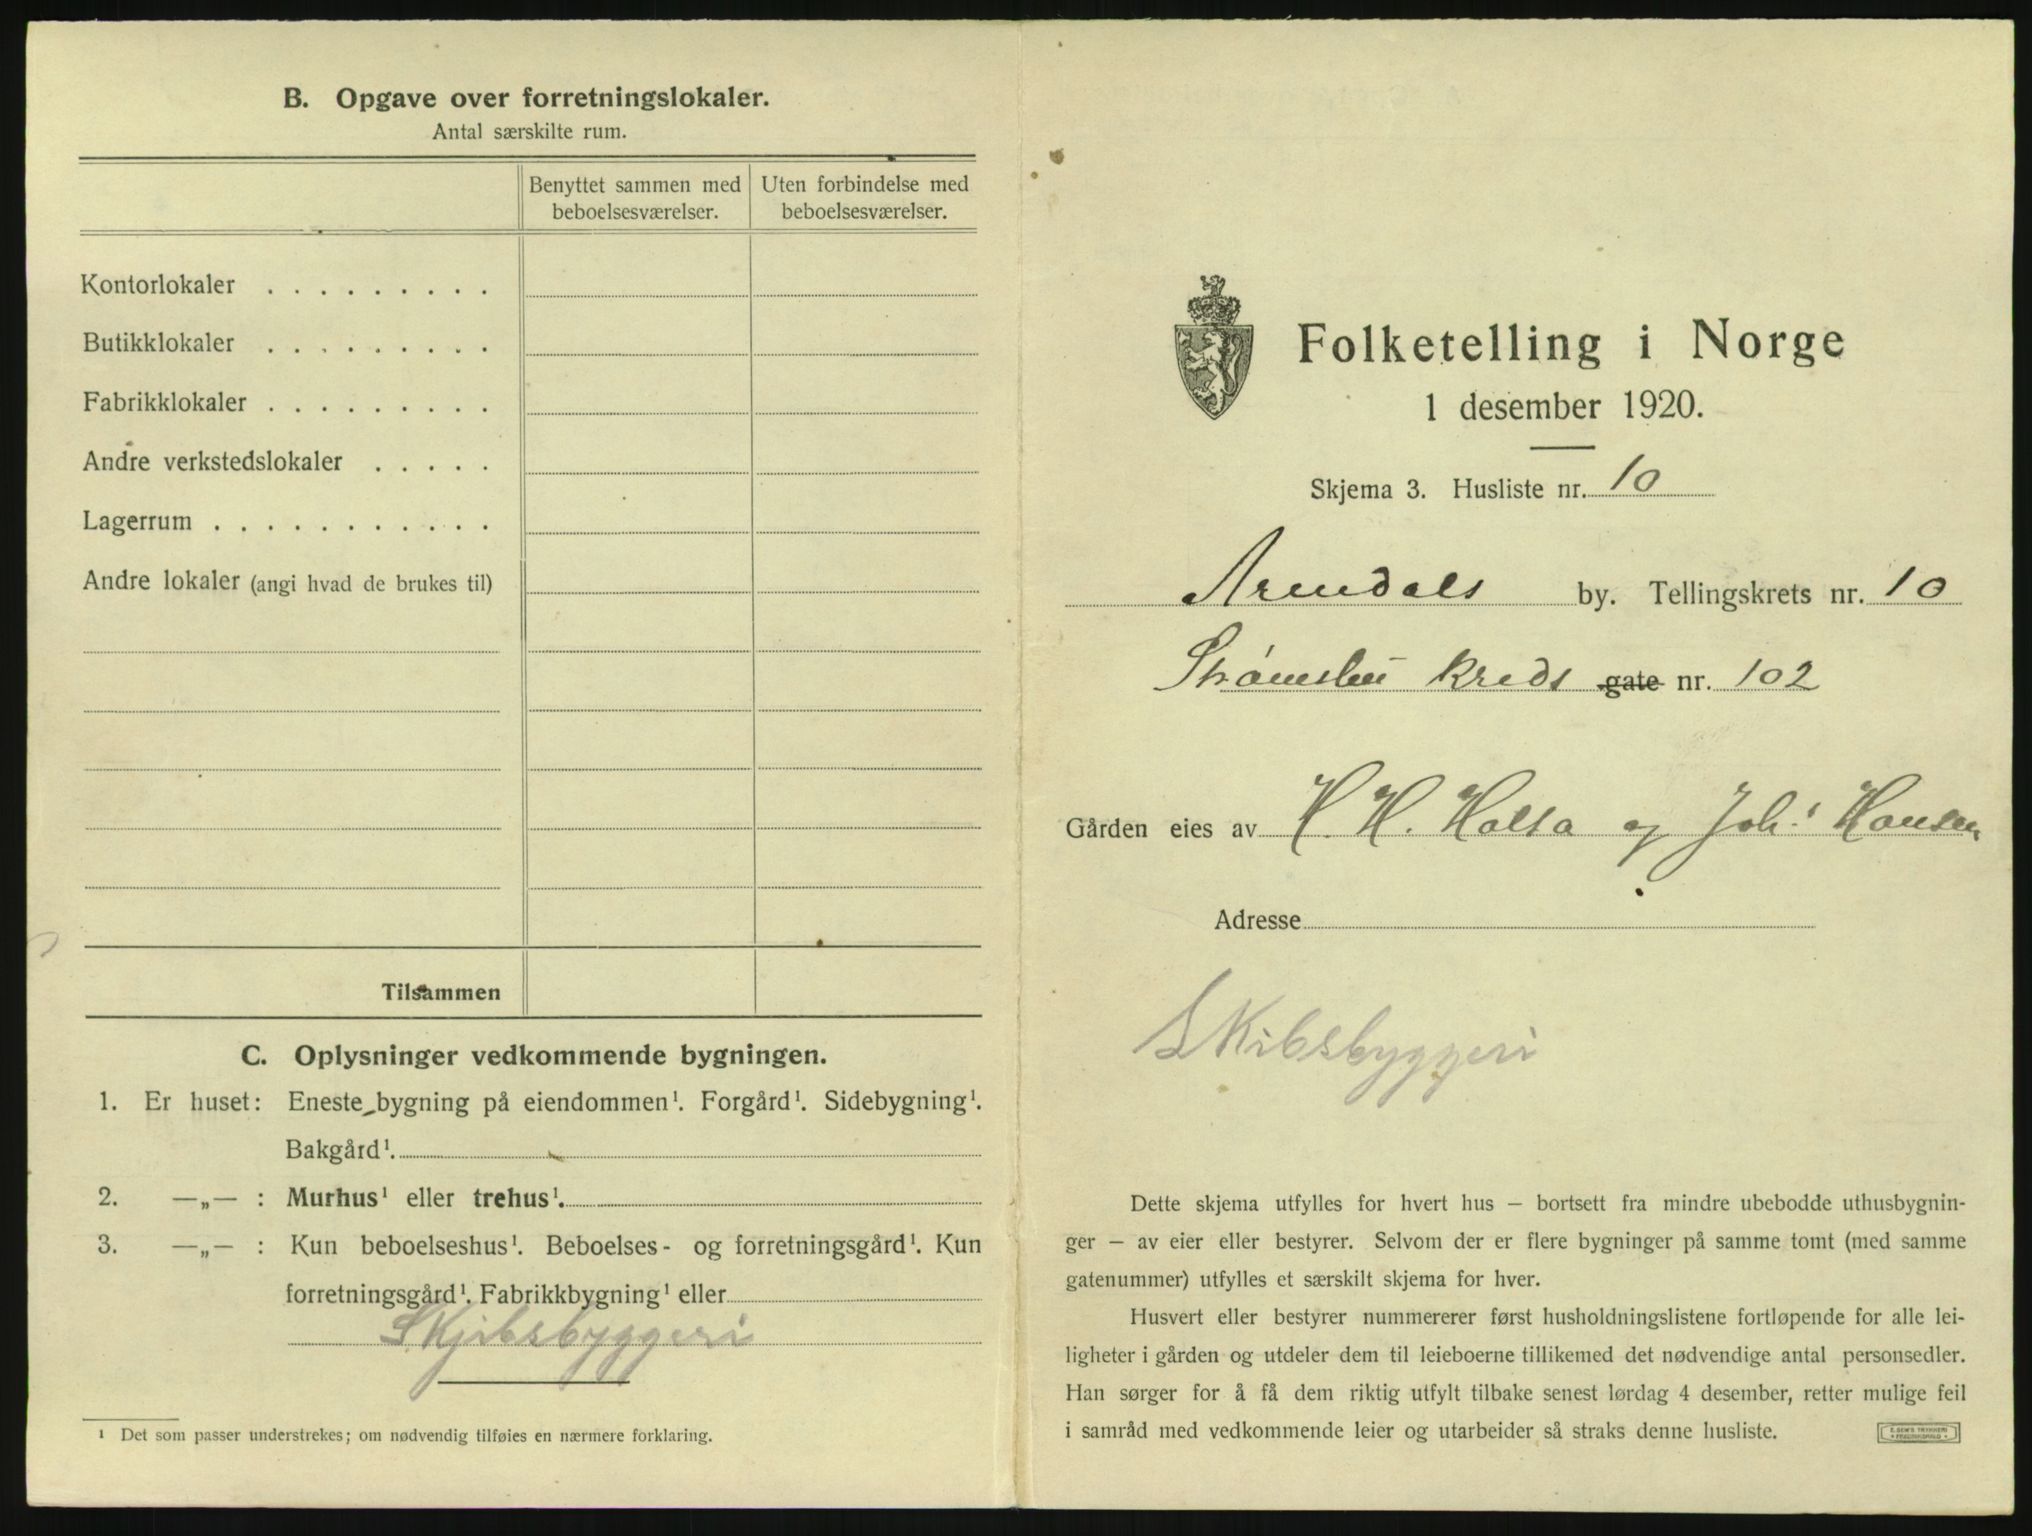 B. Opgave over forretningslokaler.
Antal særskilte rum.
Benyttet sammen med beboelsesværelser.
Uten forbindelse med beboelsesværelser.
Kontorlokaler . . . . . . . . .
Butikklokaler . . . . . . . . .
Fabrikklokaler . . . . . . . . .
Andre verkstedslokaler . . . . .
Lagerrum . . . . . . . . . . .
Andre lokaler (angi hvad de brukes til)
Tilsammen
C. Oplysninger vedkommende bygningen.
1. Er huset: Eneste bygning på eiendommen¹. Forgård¹. Sidebygning¹.
Bakgård¹.
2. —„— : Murhus¹ eller trehus¹.
3. —„— : Kun beboelseshus¹. Beboelses- og forretningsgård¹. Kun
forretningsgård¹. Fabrikkbygning¹ eller
Skjibsbyggeri
¹ Det som passer understrekes; om nødvendig tilføies en nærmere forklaring.
Folketelling i Norge
1 desember 1920.
Skjema 3. Husliste nr. 10
Arendals by. Tellingskrets nr. 10
Strømsbu Kreds gate nr. 102
Gården eies av H. H. Holta og Joh.s Hansen
Adresse
Skibsbyggeri
Dette skjema utfylles for hvert hus — bortsett fra mindre ubebodde uthusbygnin-
ger — av eier eller bestyrer. Selvom der er flere bygninger på samme tomt (med samme
gatenummer) utfylles et særskilt skjema for hver.
Husvert eller bestyrer nummererer først husholdningslistene fortløpende for alle lei-
ligheter i gården og utdeler dem til leieboerne tillikemed det nødvendige antal personsedler.
Han sørger for å få dem riktig utfylt tilbake senest lørdag 4 desember, retter mulige feil
i samråd med vedkommende leier og utarbeider så straks denne husliste.